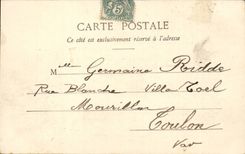 CARTE POSTALE
Ce côté est exclusivement réservé à l'adresse
Mlle Germaine Ridde
Rue Blanche Villa Toel
Mourillon
Toulon
Var